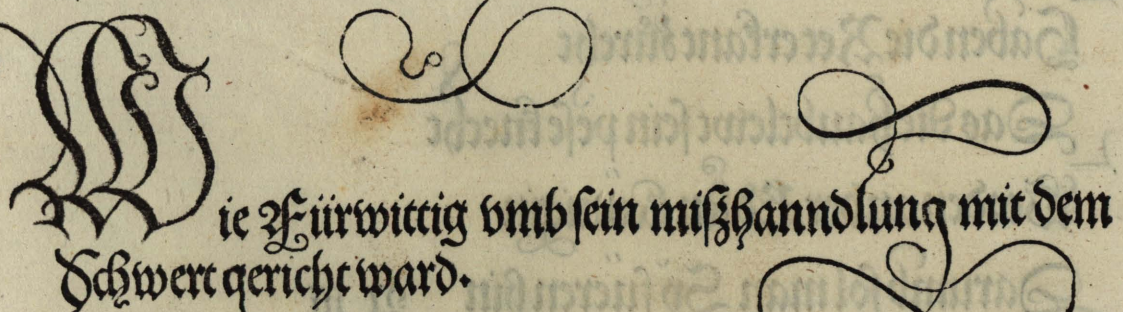 Wie Fürwittig vmb sein miſzhanndlung mit dem
Schwert gericht ward.